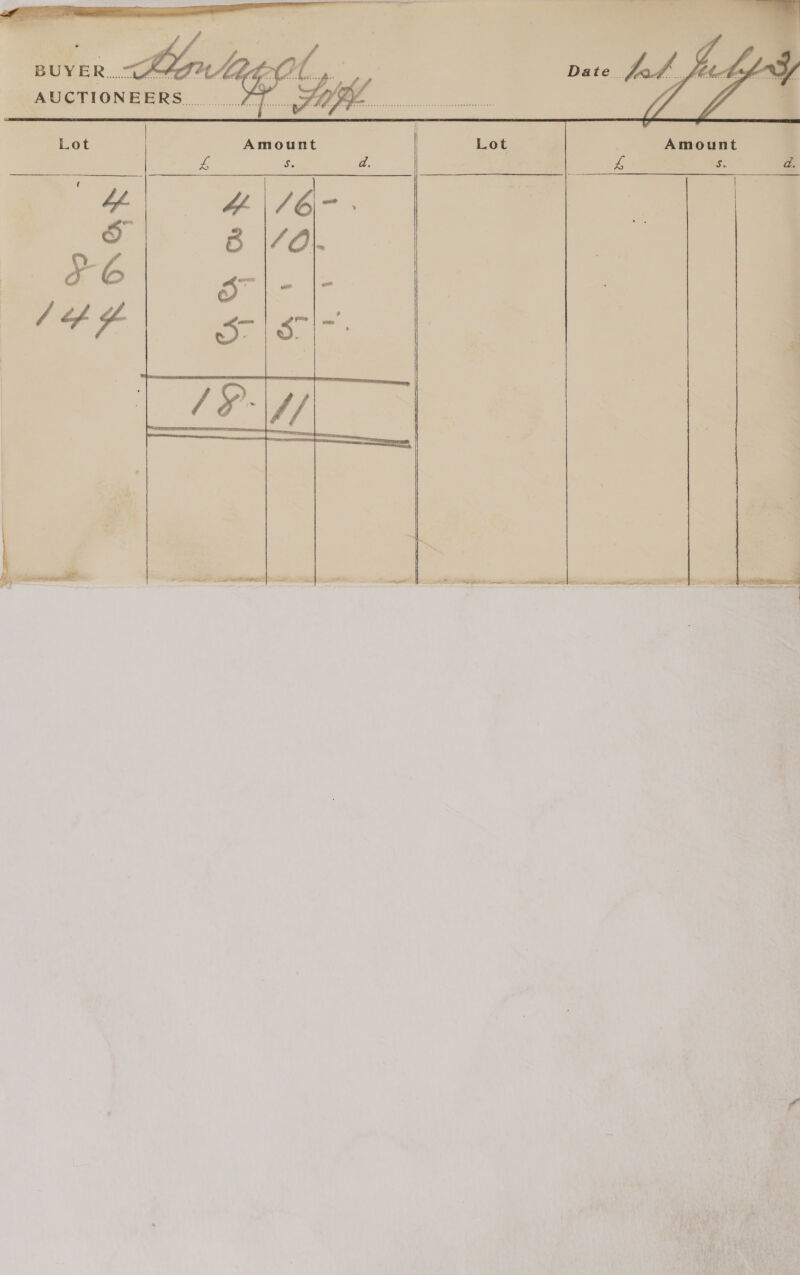 BUYER Howard
Date 1st July 31
AUCTIONEERS
Lot Amount Lot Amount
£ s. d. £ s. d.
4 4 16 -
5 3 10 -
86 5 - -
144 5 5 -
18 - 11